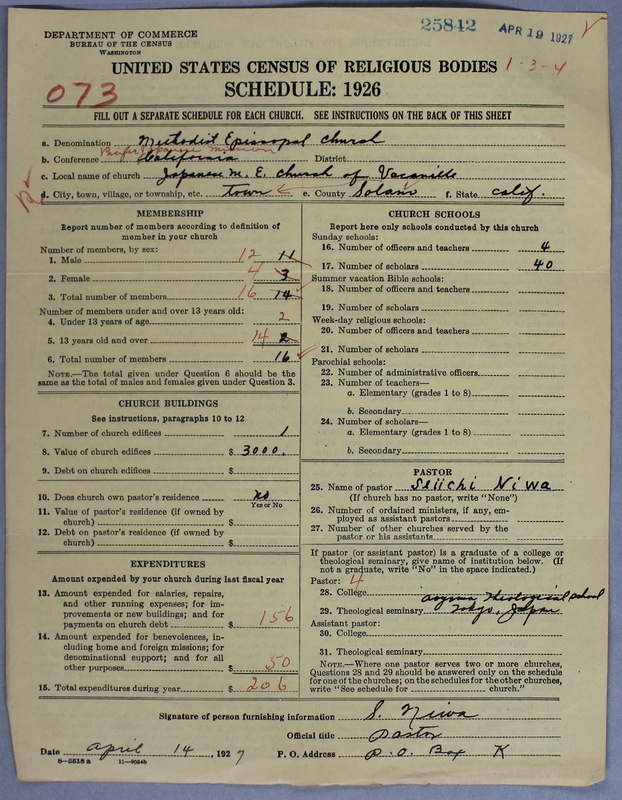 25842 APR 19 1927
DEPARTMENT OF COMMERCE
BUREAU OF THE CENSUS
WASHINGTON
UNITED STATES CENSUS OF RELIGIOUS BODIES 1-3-4
073 SCHEDULE: 1926
FILL OUT A SEPARATE SCHEDULE FOR EACH CHURCH. SEE INSTRUCTIONS ON THE BACK OF THIS SHEET
a. Denomination Methodist Episcopal Church
Pacific Japanese Mission
b. Conference California District
c. Local name of church Japanese M. E. Church of Vacaville
d. City, town, village, or township, etc. town e. County Solano f. State Calif.
MEMBERSHIP
Report number of members according to definition of
member in your church
Number of members, by sex:
1. Male 12 11
2. Female 4 3
3. Total number of members 16 14
Number of members under and over 13 years old:
4. Under 13 years of age 2
5. 13 years old and over 14 2
6. Total number of members 16
NOTE.—The total given under Question 6 should be the
same as the total of males and females given under Question 3.
CHURCH BUILDINGS
See instructions, paragraphs 10 to 12
7. Number of church edifices 1
8. Value of church edifices $ 3000.
9. Debt on church edifices $
10. Does church own pastor's residence no
Yes or No
11. Value of pastor's residence (if owned by
church) $
12. Debt on pastor's residence (if owned by
church) $
EXPENDITURES
Amount expended by your church during last fiscal year
13. Amount expended for salaries, repairs,
and other running expenses; for im-
provements or new buildings; and for
payments on church debt $ 156
14. Amount expended for benevolences, in-
cluding home and foreign missions; for
denominational support; and for all
other purposes $ 50
15. Total expenditures during year $ 206
CHURCH SCHOOLS
Report here only schools conducted by this church
Sunday schools:
16. Number of officers and teachers 4
17. Number of scholars 40
Summer vacation Bible schools:
18. Number of officers and teachers
19. Number of scholars
Week-day religious schools:
20. Number of officers and teachers
21. Number of scholars
Parochial schools:
22. Number of administrative officers
23. Number of teachers—
a. Elementary (grades 1 to 8)
b. Secondary
24. Number of scholars—
a. Elementary (grades 1 to 8)
b. Secondary
PASTOR
25. Name of pastor Seiichi Niwa
(If church has no pastor, write "None")
26. Number of ordained ministers, if any, em-
ployed as assistant pastors
27. Number of other churches served by the
pastor or his assistants
If pastor (or assistant pastor) is a graduate of a college or
theological seminary, give name of institution below. (If
not a graduate, write "No" in the space indicated.)
Pastor: 4
28. College
Theological School
29. Theological seminary Tokyo, Japan
Assistant pastor:
30. College
31. Theological seminary
NOTE.—Where one pastor serves two or more churches,
Questions 28 and 29 should be answered only on the schedule
for one of the churches; on the schedules for the other churches,
write "See schedule for church."
Signature of person furnishing information S. Niwa
Official title Pastor
Date April 14, 1927 P. O. Address P. O. Box K
8—5518 a 11—9054b